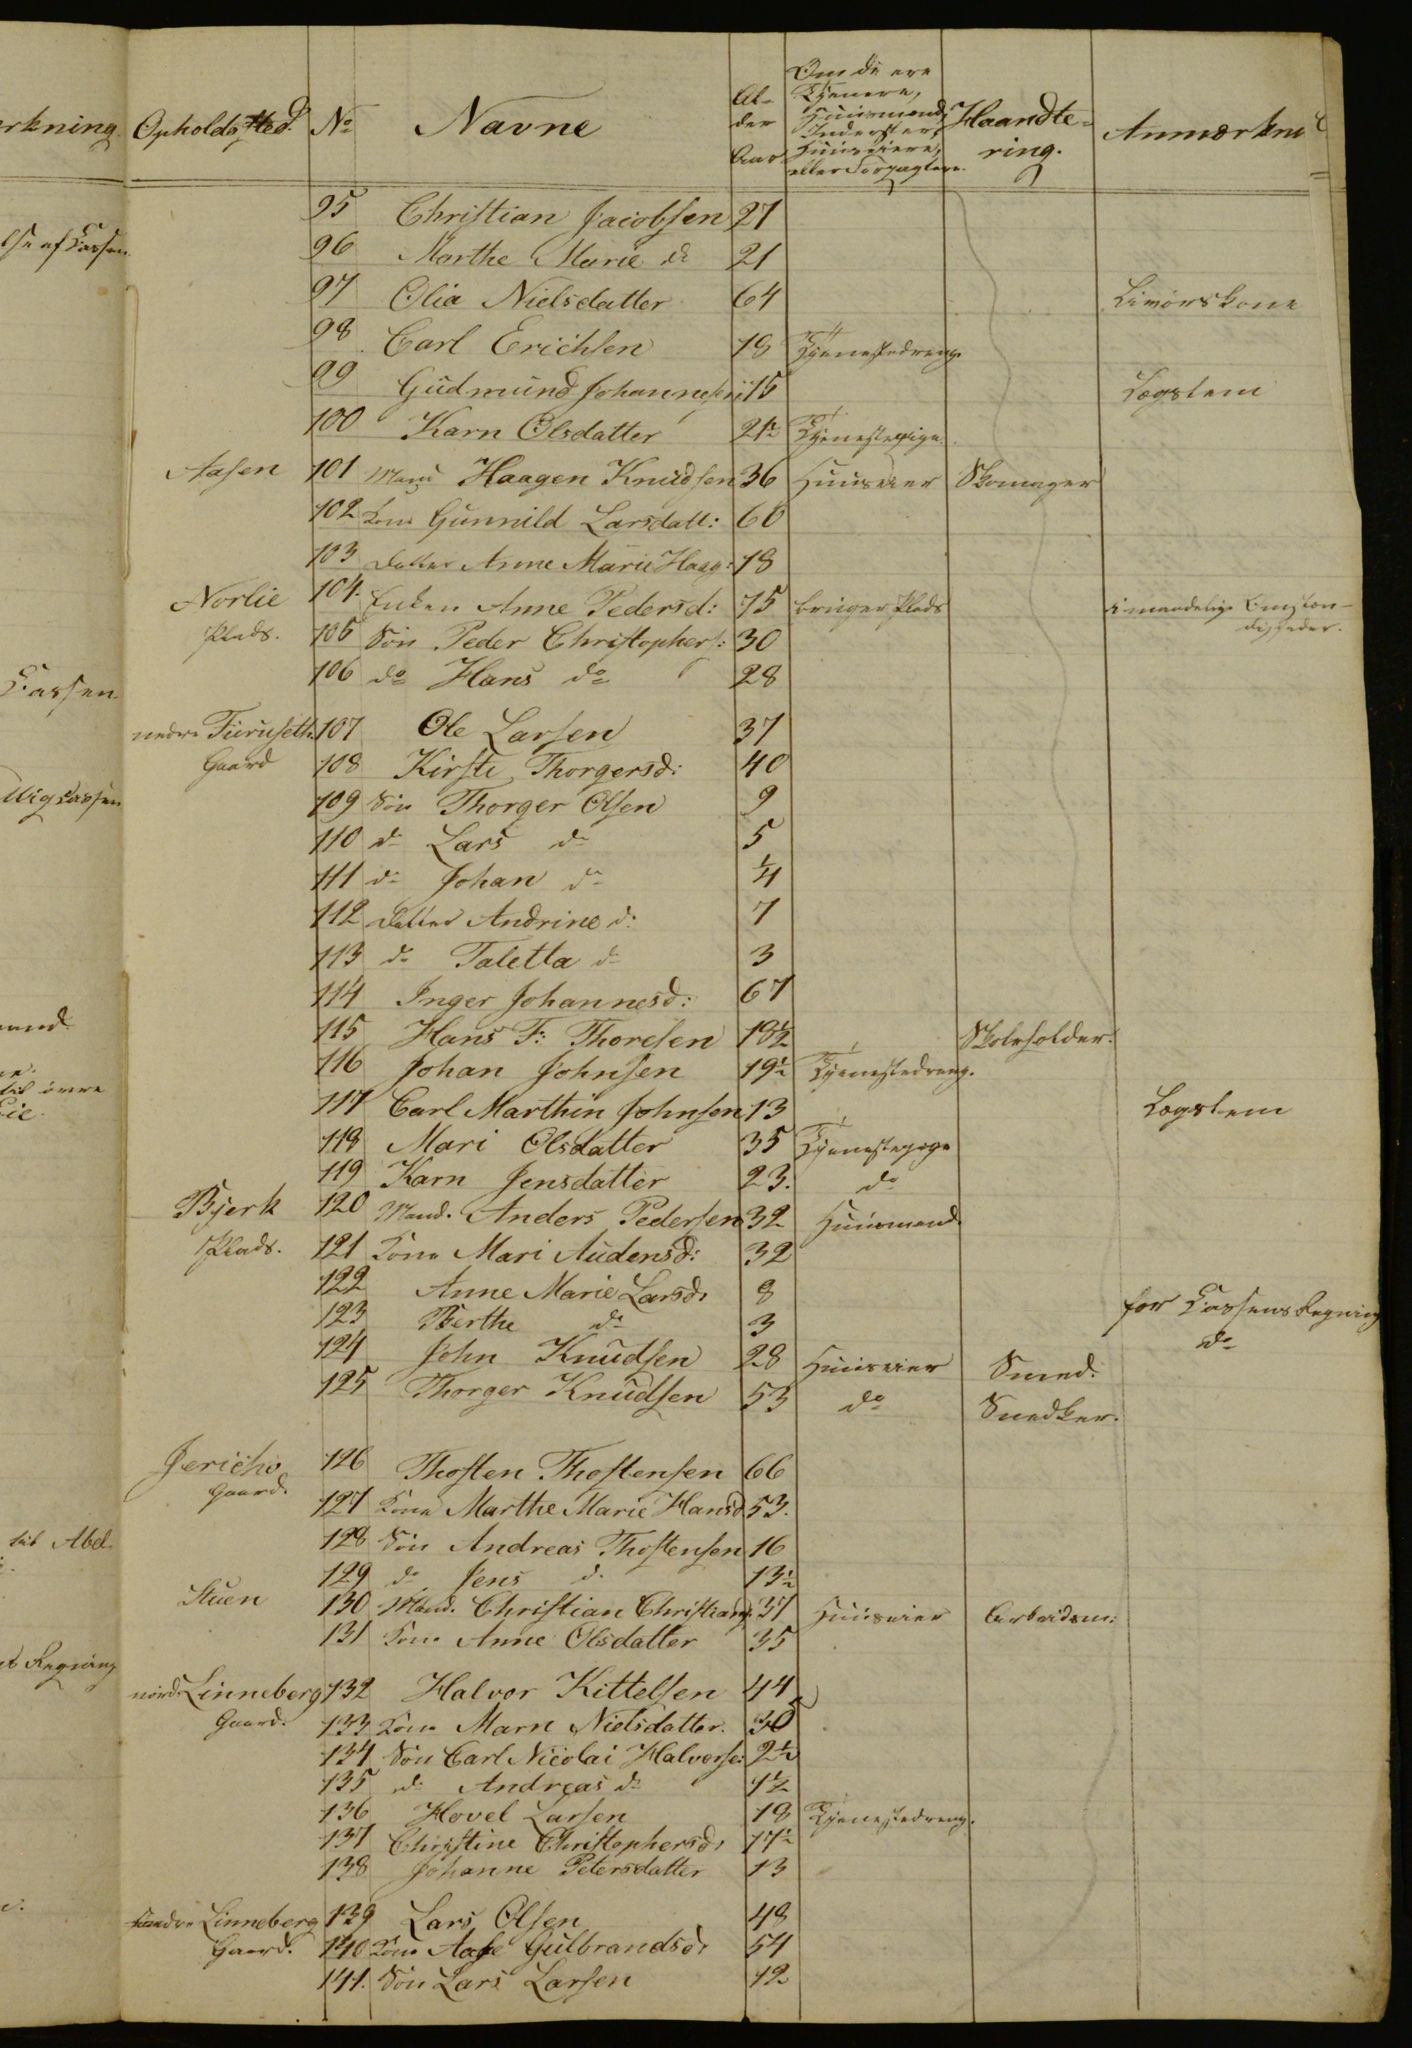 Opholdssted. No Navne Al-der Aar Om de ere Tjenere, Huusmænd, Inderster, Huuseiere, eller Forpagtere. Haandte-ring. Anmærkni
95 Christian Jacobsen 27
96 Marthe Marie do 21
97 Olia Nielsdatter 64 Livørskone
98 Carl Erichsen 18 Tjenestedreng
99 Gudmund Johannesen 15 Lægslem
100 Karn Olsdatter 21½ Tjenestepige.
Aasen 101 Mand Haagen Knudsen 36 Huuseier Skomager
102 Kone Gunnild Larsdatt: 60
103 Datter Anne Marie Haag: 18
Norlie 104. Enken Anne Pedersd: 75 bruger Plads i maadelige Omstæn-
Plads. 105 Søn Peder Christophers: 30 digheder.
106 do Hans do 28
nedre Furuseth 107 Ole Larsen 37
Gaard 108 Kirsti Thorgersd: 40
109 Søn Thorger Olsen 9
110 do Lars do 5
111 do Johan do ¼
112 Datter Andrine d: 7
113 do Taletta do 3
114 Inger Johannesd: 67
115 Hans F: Thoresen 18½ Skoleholder.
116 Johan Johnsen 19½ Tjenestedreng.
117 Carl Marthin Johnsen 13 Lægslem
118 Mari Olsdatter 35 Tjenestepige
119 Karn Jensdatter 23. do
Bjerk 120 Mand. Anders Pedersen 32 Huusmand
Plads. 121 Kone Mari Audensd: 32
122 Anne Marie Larsd: 8 for Cassens Regning
123 Berthe do 3 do
124 John Knudsen 28 Huuseier Smed.
125 Thorger Knudsen 53 do Snedker.
Jericho 126 Thosten Thostensen 66
Gaard. 127 Kone Marthe Marie Hansd 53.
128 Søn Andreas Thostensen 16
129 do Jens d. 13½
Stuen 130 Mand. Christian Christians: 37 Huuseier Arbeidsm:
131 Kone Anne Olsdatter 35
nord. Linneberg 132 Halvor Kittelsen 44
Gaard. 133 Kone Marn Nielsdatter. 30
134 Søn Carl Nicolai Halvorse: 2½
135 do Andreas do 1½
136 Hovel Larsen 18 Tjenestedreng.
137 Christine Christophersd: 17½
138 Johanne Petersdatter 13
søndre Linneberg 139 Lars Olsen 48
Gaard. 140 Kone Aase Gulbrandsd: 54
141. Søn Lars Larsen 12